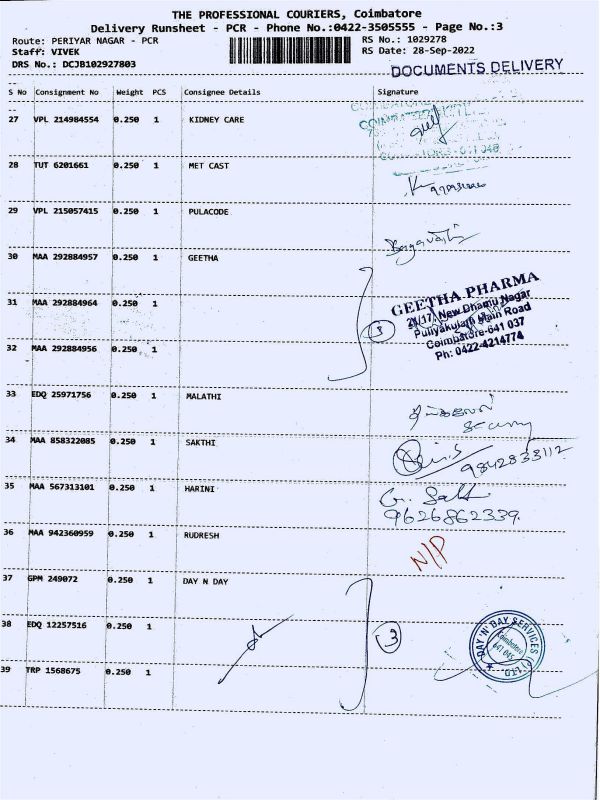 THE PROFESSIONAL COURIERS, Coimbatore
Delivery Runsheet - PCR - Phone No.:0422-3505555 - Page No.:3
Route: PERIYAR NAGAR - PCR
RS No.: 1029278
Staff: VIVEK
RS Date: 28-Sep-2022
DRS No.: DCJB102927803
DOCUMENTS DELIVERY
S No Consignment No Weight PCS Consignee Details Signature
27 VPL 214984554 0.250 1 KIDNEY CARE
28 TUT 6201661 0.250 1 MET CAST
29 VPL 215057415 0.250 1 PULACODE
30 MAA 292884957 0.250 1 GEETHA
31 MAA 292884964 0.250 1
32 MAA 292884956 0.250 1
3
GEETHA PHARMA
21/17, New Dhamu Nagar
Puliyakulam Main Road
Coimbatore-641 037
Ph: 0422-4214774
33 EDQ 25971756 0.250 1 MALATHI
34 MAA 858322085 0.250 1 SAKTHI
9842833112
35 MAA 567313101 0.250 1 HARINI
9626862339
36 MAA 942360959 0.250 1 RUDRESH N/P
37 GPM 249072 0.250 1 DAY N DAY
38 EDQ 12257516 0.250 1
39 TRP 1568675 0.250 1
3
DAY 'N' DAY SERVICES P LTD
Coimbatore
641 045